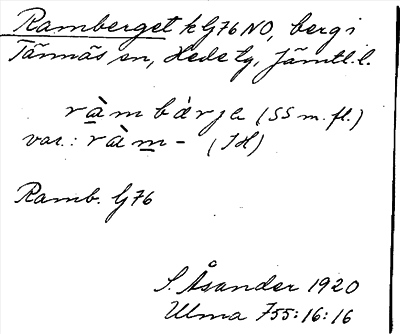 Ramberget k G76 NO, berg i
Tännäs sn, Hede tg, Jämtl. l.
ràmbærja (SS m.fl.)
var.: ràm- (JH)
Ramb. G76
S. Åsander 1920
Ulma 755:16:16